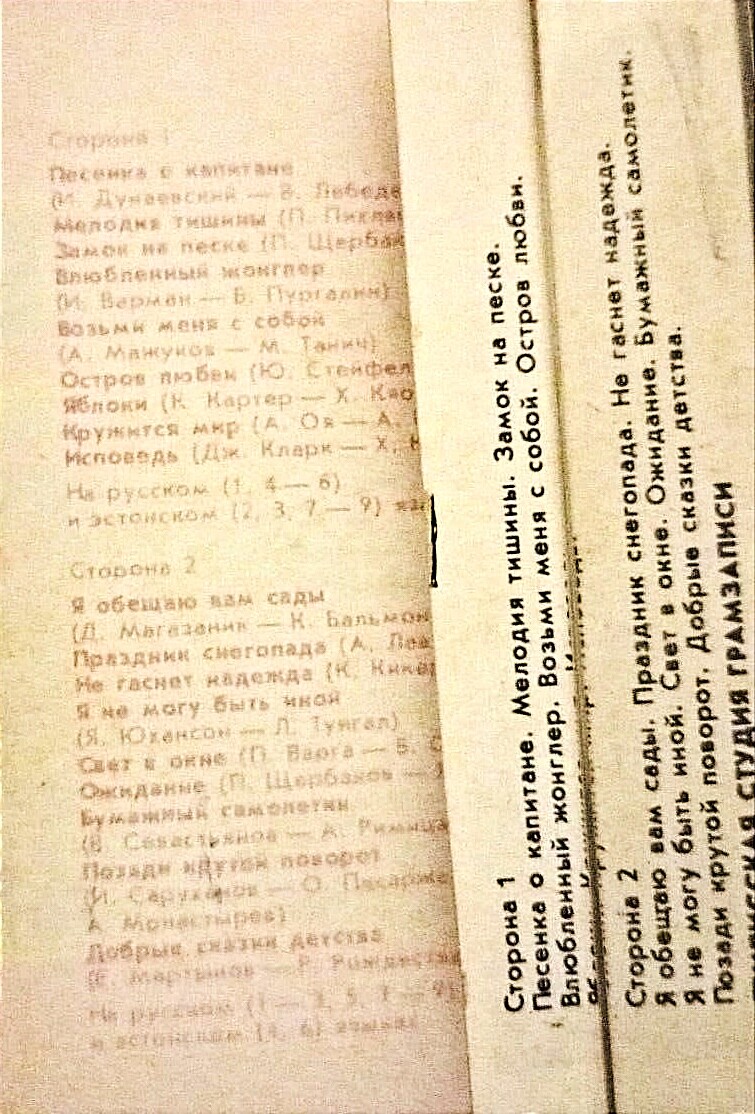 Сторона 1
Песенка о капитане
(И. Дунаевский — В. Лебеде
Мелодия тишины (П.
Замок на песке (П. Щербак
Влюбленный жонглер
(И. Верман — Б. Пургалин)
Возьми меня с собой
(А. Мажуков — М. Танич)
Остров любви (Ю. Стейфел
Яблоки (К. Картер — Х.
Кружится мир (А. Оя — А.
Исповедь (Дж. Кларк — Х,
На русском (1, 4 — 6)
и эстонском (2, 3, 7 — 9)
Сторона 2
Я обещаю вам сады
(Д. Магазаник — К. Бальмон
Праздник снегопада (А.
Не гаснет надежда (К.
Я не могу быть иной
(Я. Юхансон — Л. Тунгал)
Свет в окне (П. Варга — Б.
Ожидание (П. Щербаков —
Бумажный самолетик
(В. Севастьянов — А. Римица
Позади крутой поворот
(И. Саруханов — О. Писарже
А. Монастырев)
Добрые сказки детства
(Е. Мартынов — Р. Рождеств
На русском (1 — 3, 5, 7 — 9)
и эстонском (4, 6) языках
Сторона 1
Песенка о капитане. Мелодия тишины. Замок на песке.
Влюбленный жонглер. Возьми меня с собой. Остров любви.
Сторона 2
Я обещаю вам сады. Праздник снегопада. Не гаснет надежда.
Я не могу быть иной. Свет в окне. Ожидание. Бумажный самолетик.
Позади крутой поворот. Добрые сказки детства.
СТУДИЯ ГРАМЗАПИСИ